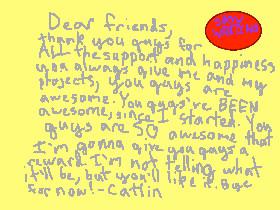 Dear friends,
thank you guys for
All the support and happiness
you always give me and my
projects, you guys are
awesome. You guys've BEEN
awesome, since I started. You
guys are SO awesome that
I'm gonna give you guys a
reward. I'm not telling what
it'll be, but you'll like it. Bye
for now! -Catlin